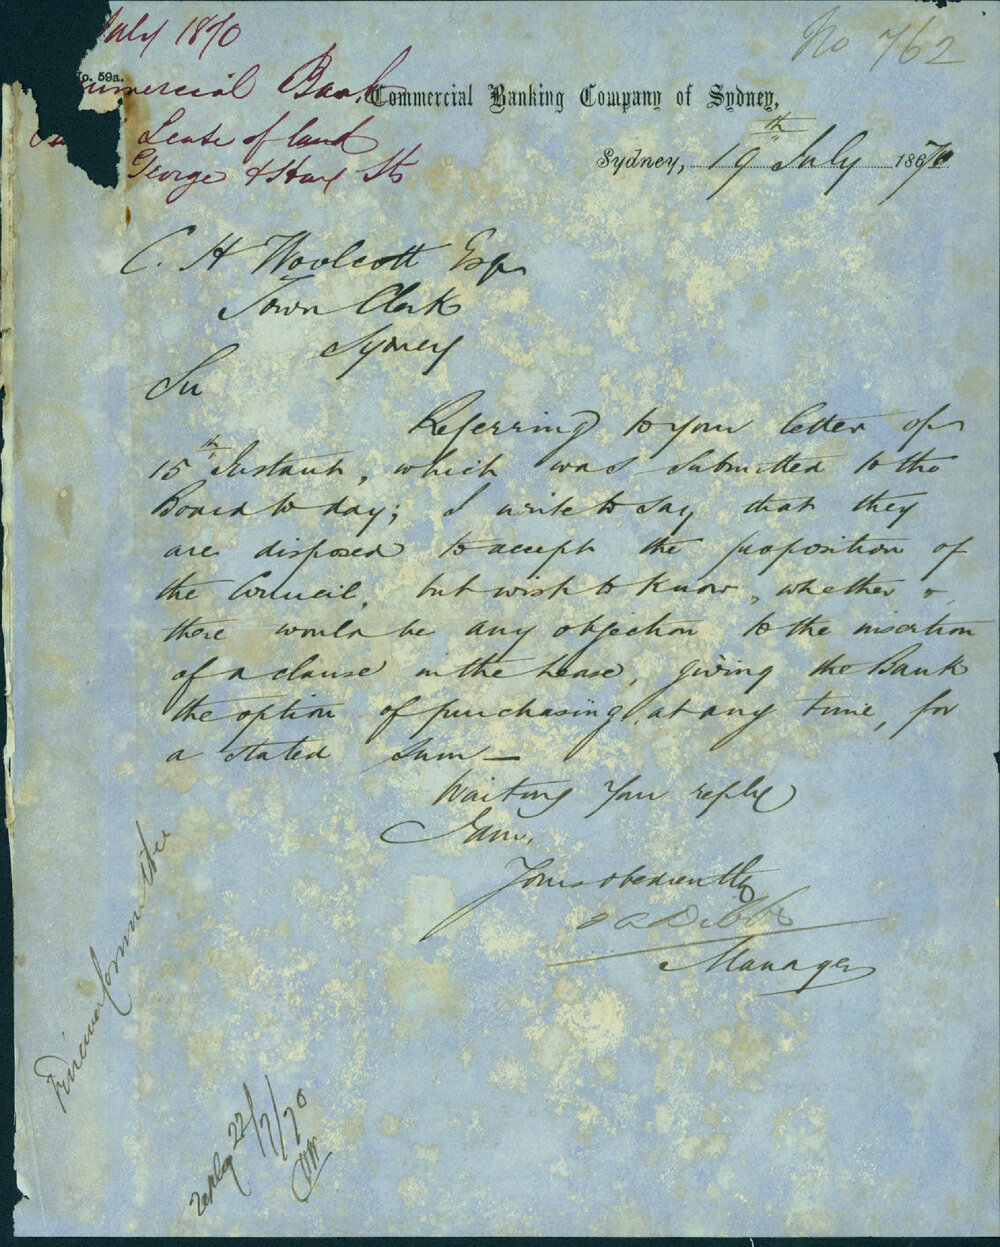 July 1870
No 762
No. 59a.
Commercial Bank
Lease of land
George & Hay Sts
Commercial Banking Company of Sydney,
Sydney, 19th July 1870
C. H Woolcott Esqr
Town Clerk
Sydney
Sir
Referring to your letter of
15th Instant, which was submitted to the
Board to day; I write to say that they
are disposed to accept the proposition of
the Council, but wish to know, whether
there would be any objection to the insertion
of a clause in the lease, giving the Bank
the option of purchasing, at any time, for
a stated sum —
Waiting your reply
I am,
Yours obediently
Dibbs
Manager
Finance Committee
reply 22/7/70